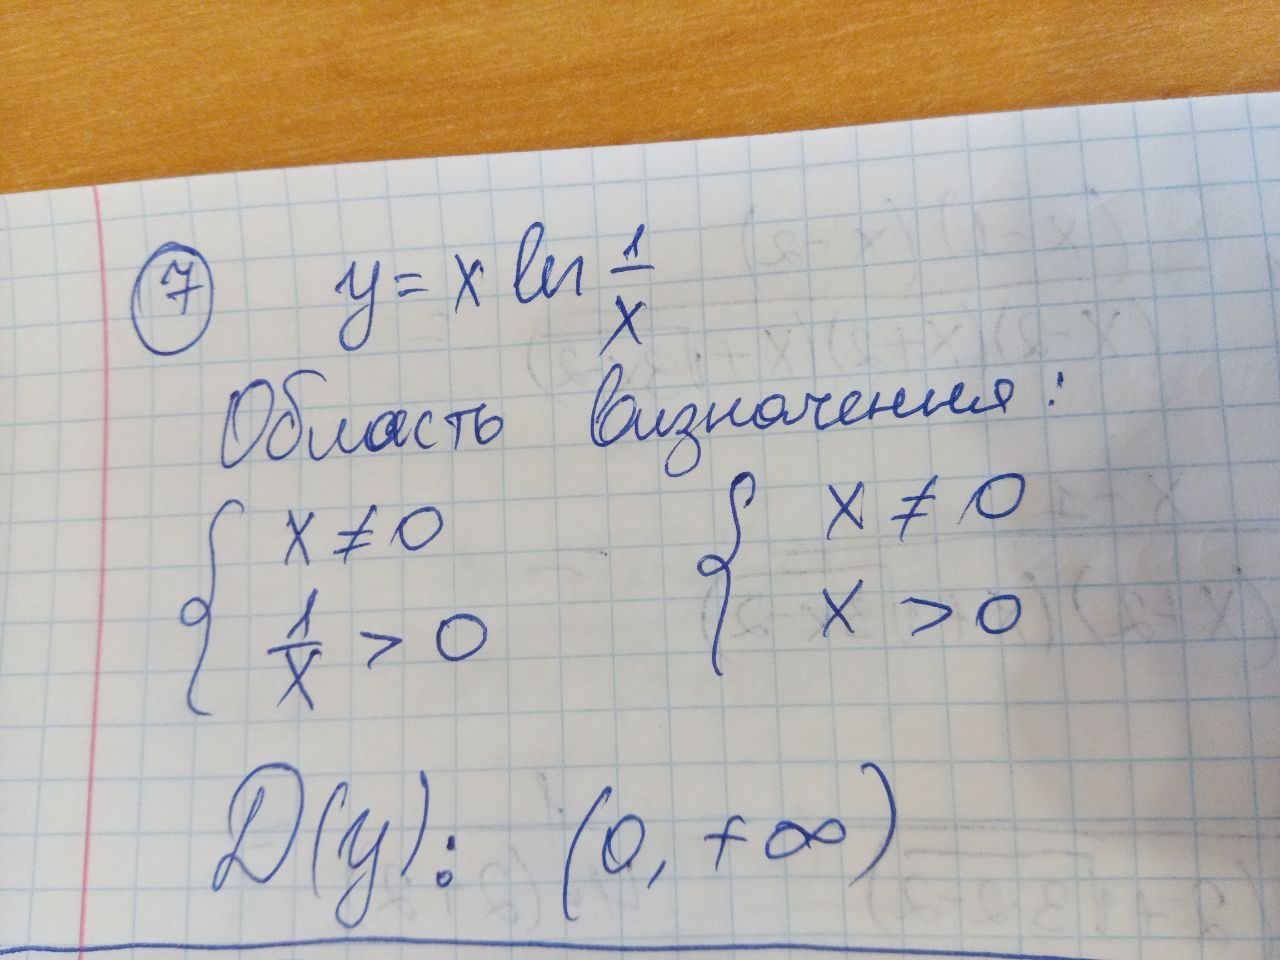 7 y = x ln 1/x
Область визначення:
{ x ≠ 0 { x ≠ 0
1/x > 0 x > 0
D(y): (0, +∞)